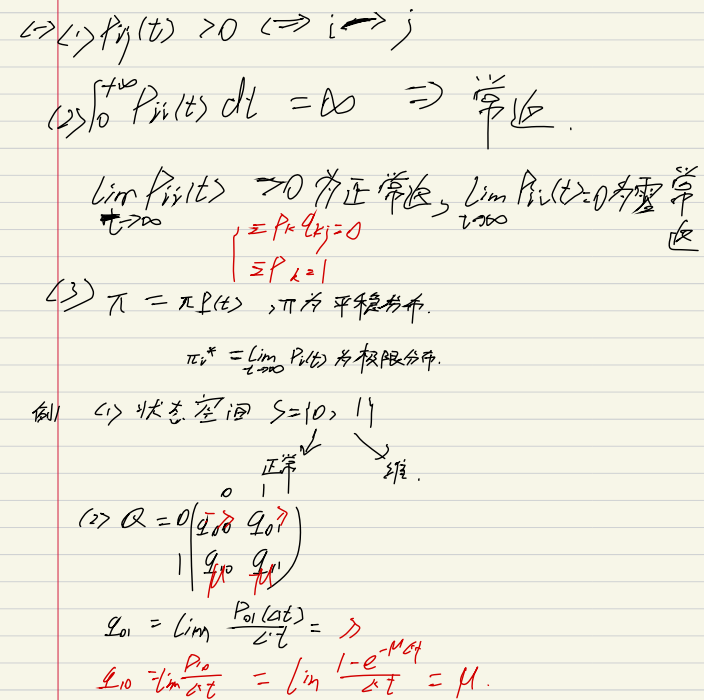 (一) (1) Pij(t) >0 ⟺ i→j
(2) ∫₀^{+∞} Pii(t) dt = ∞ ⇒ 常返.
lim_{t→∞} Pii(t) >0 为正常返, lim_{t→∞} Pii(t)=0 为零常返
Σ Pk qkj=0
Σ Pk=1
(3) π = πP(t) , π为平稳分布.
πi* = lim_{t→∞} Pi(t) 为极限分布.
例1 (1) 状态空间 S={0, 1}
正常 维.
0 1
(2) Q = 0 ( q00 -λ q01 λ
1 q10 μ q11 -μ )
q01 = lim P01(Δt)/Δt = λ
q10 = lim P10/Δt = lim (1-e^{-μΔt})/Δt = μ.